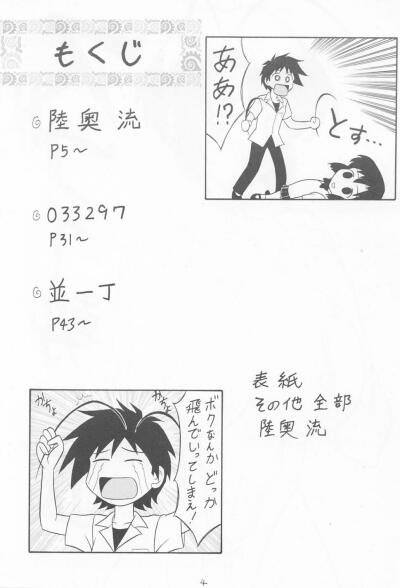 もくじ
陸奥 流
P5〜
033297
P31〜
並一丁
P43〜
ああ!?
とす...
ボクなんか どっか
飛んでいってしまえ!
表紙
その他 全部
陸奥 流
4